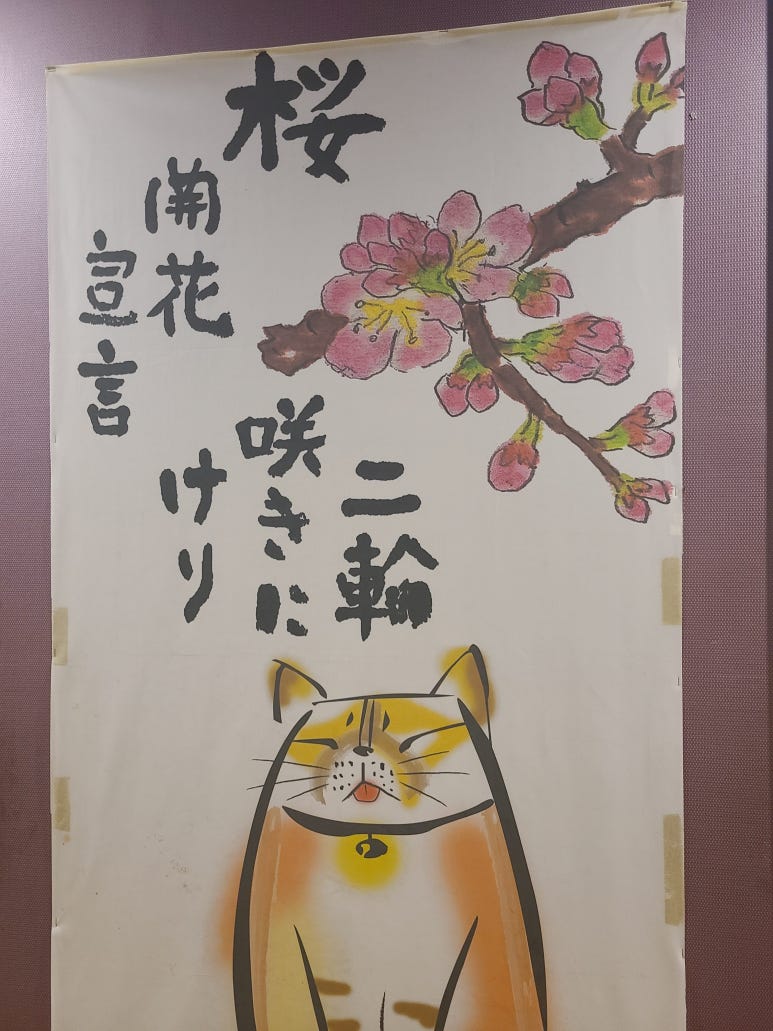 桜
開花
宣言
二輪
咲きに
けり